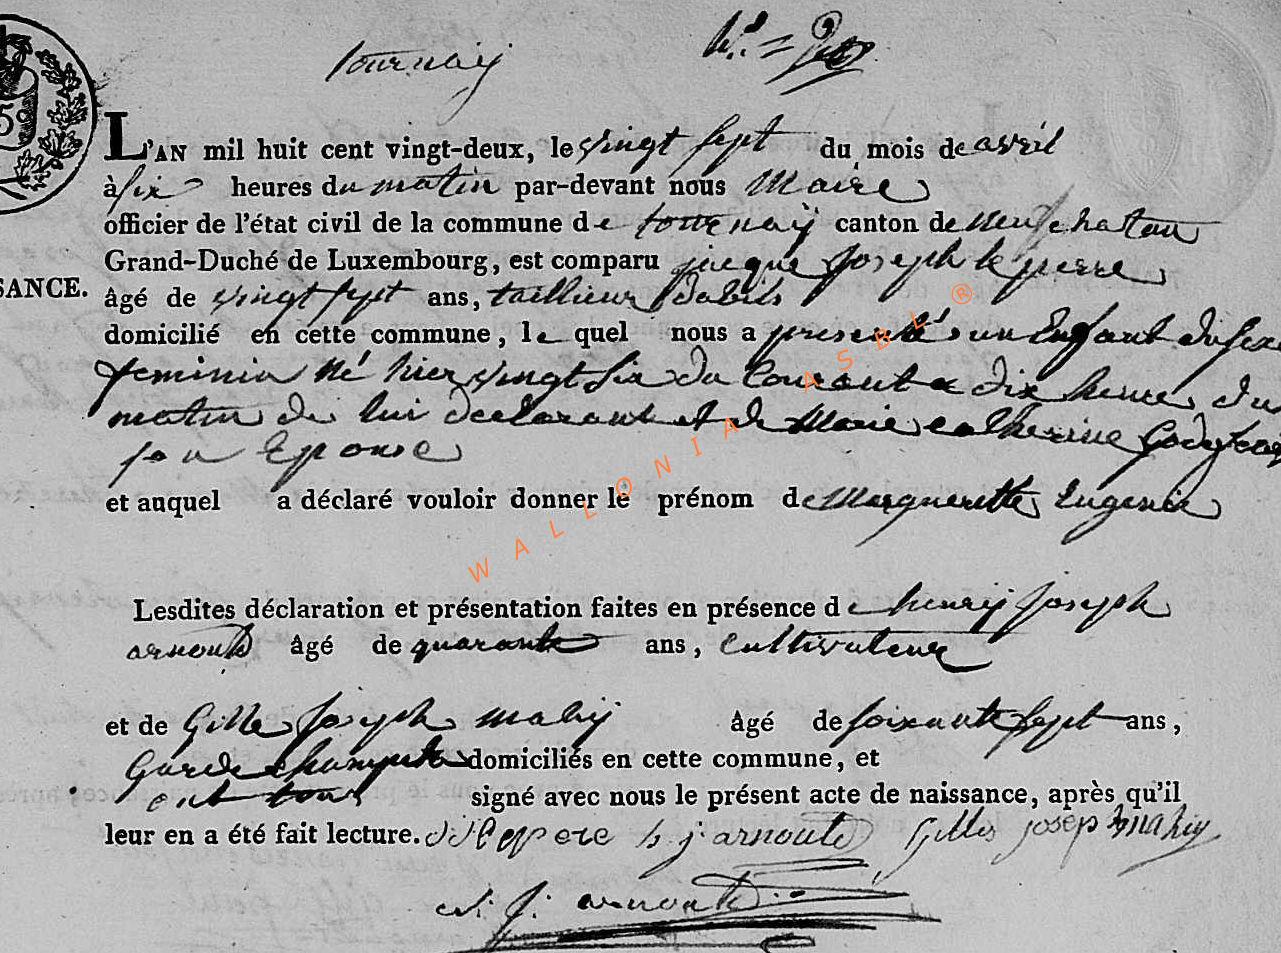 tournaÿ
L'AN mil huit cent vingt-deux, le vingt sept du mois de avril
à six heures du matin par-devant nous Maire
officier de l'état civil de la commune de tournaÿ canton de neufchatau
Grand-Duché de Luxembourg, est comparu jacque Joseph le pierre
SANCE.
âgé de vingt sept ans, taillieur dabits
domicilié en cette commune, le quel nous a presenté un Enfant du sexe
feminin né hier vingt six du Courant a dix heures du
matin de lui declarant et de Marie catherine
son Epouse
et auquel a déclaré vouloir donner le prénom de Marguerette Eugenie
Lesdites déclaration et présentation faites en présence de henrij Joseph
arnould âgé de quarante ans, cultivateur
et de Gille Joseph mahij âgé de soixante sept ans,
Garde champete domiciliés en cette commune, et
ont tous signé avec nous le présent acte de naissance, après qu'il
leur en a été fait lecture. h j arnould Gilles josep mahij
j. arnould
WALLONIA ASBL ®
5